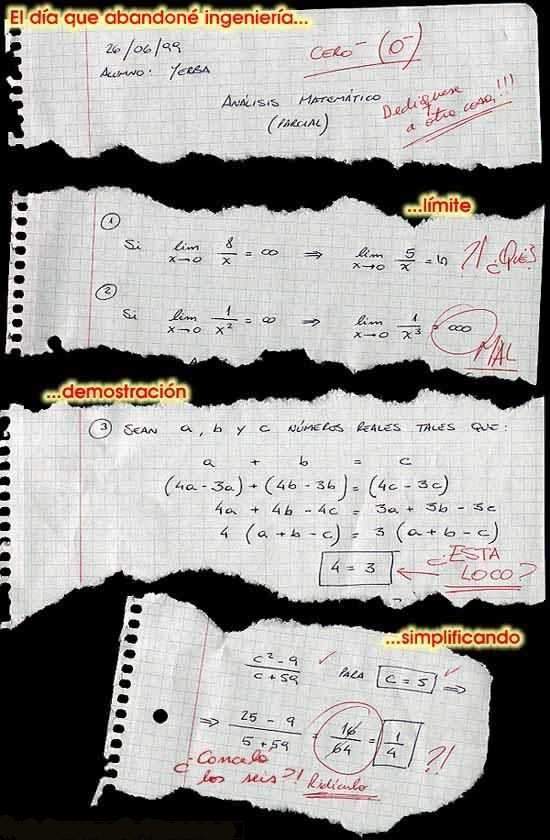 El día que abandoné ingeniería...
26/06/99
CERO⁻ (0⁻)
ALUMNO: YERBA
ANÁLISIS MATEMÁTICO
(PARCIAL)
Dedíquese
a otra cosa!!!
...límite
①
Si lim x→0 8/x = ∞ ⇒ lim x→0 5/x = ᔕ ?! ¿QUÉ?
②
Si lim x→0 1/x² = ∞ ⇒ lim x→0 1/x³ = ထ
MAL
...demostración
③ SEAN a, b y c NÚMEROS REALES TALES QUE:
a + b = c
(4a - 3a) + (4b - 3b) = (4c - 3c)
4a + 4b - 4c = 3a + 3b - 3c
4 (a + b - c) = 3 (a + b - c)
4 = 3
¿ESTA
LOCO?
...simplificando
c² - 9 / c + 59 ✓ PARA c = 5 ✓ ⇒
⇒ 25 - 9 / 5 + 59 = 16/64 = 1/4 ?!
¿Cancela
los seis?! Ridículo